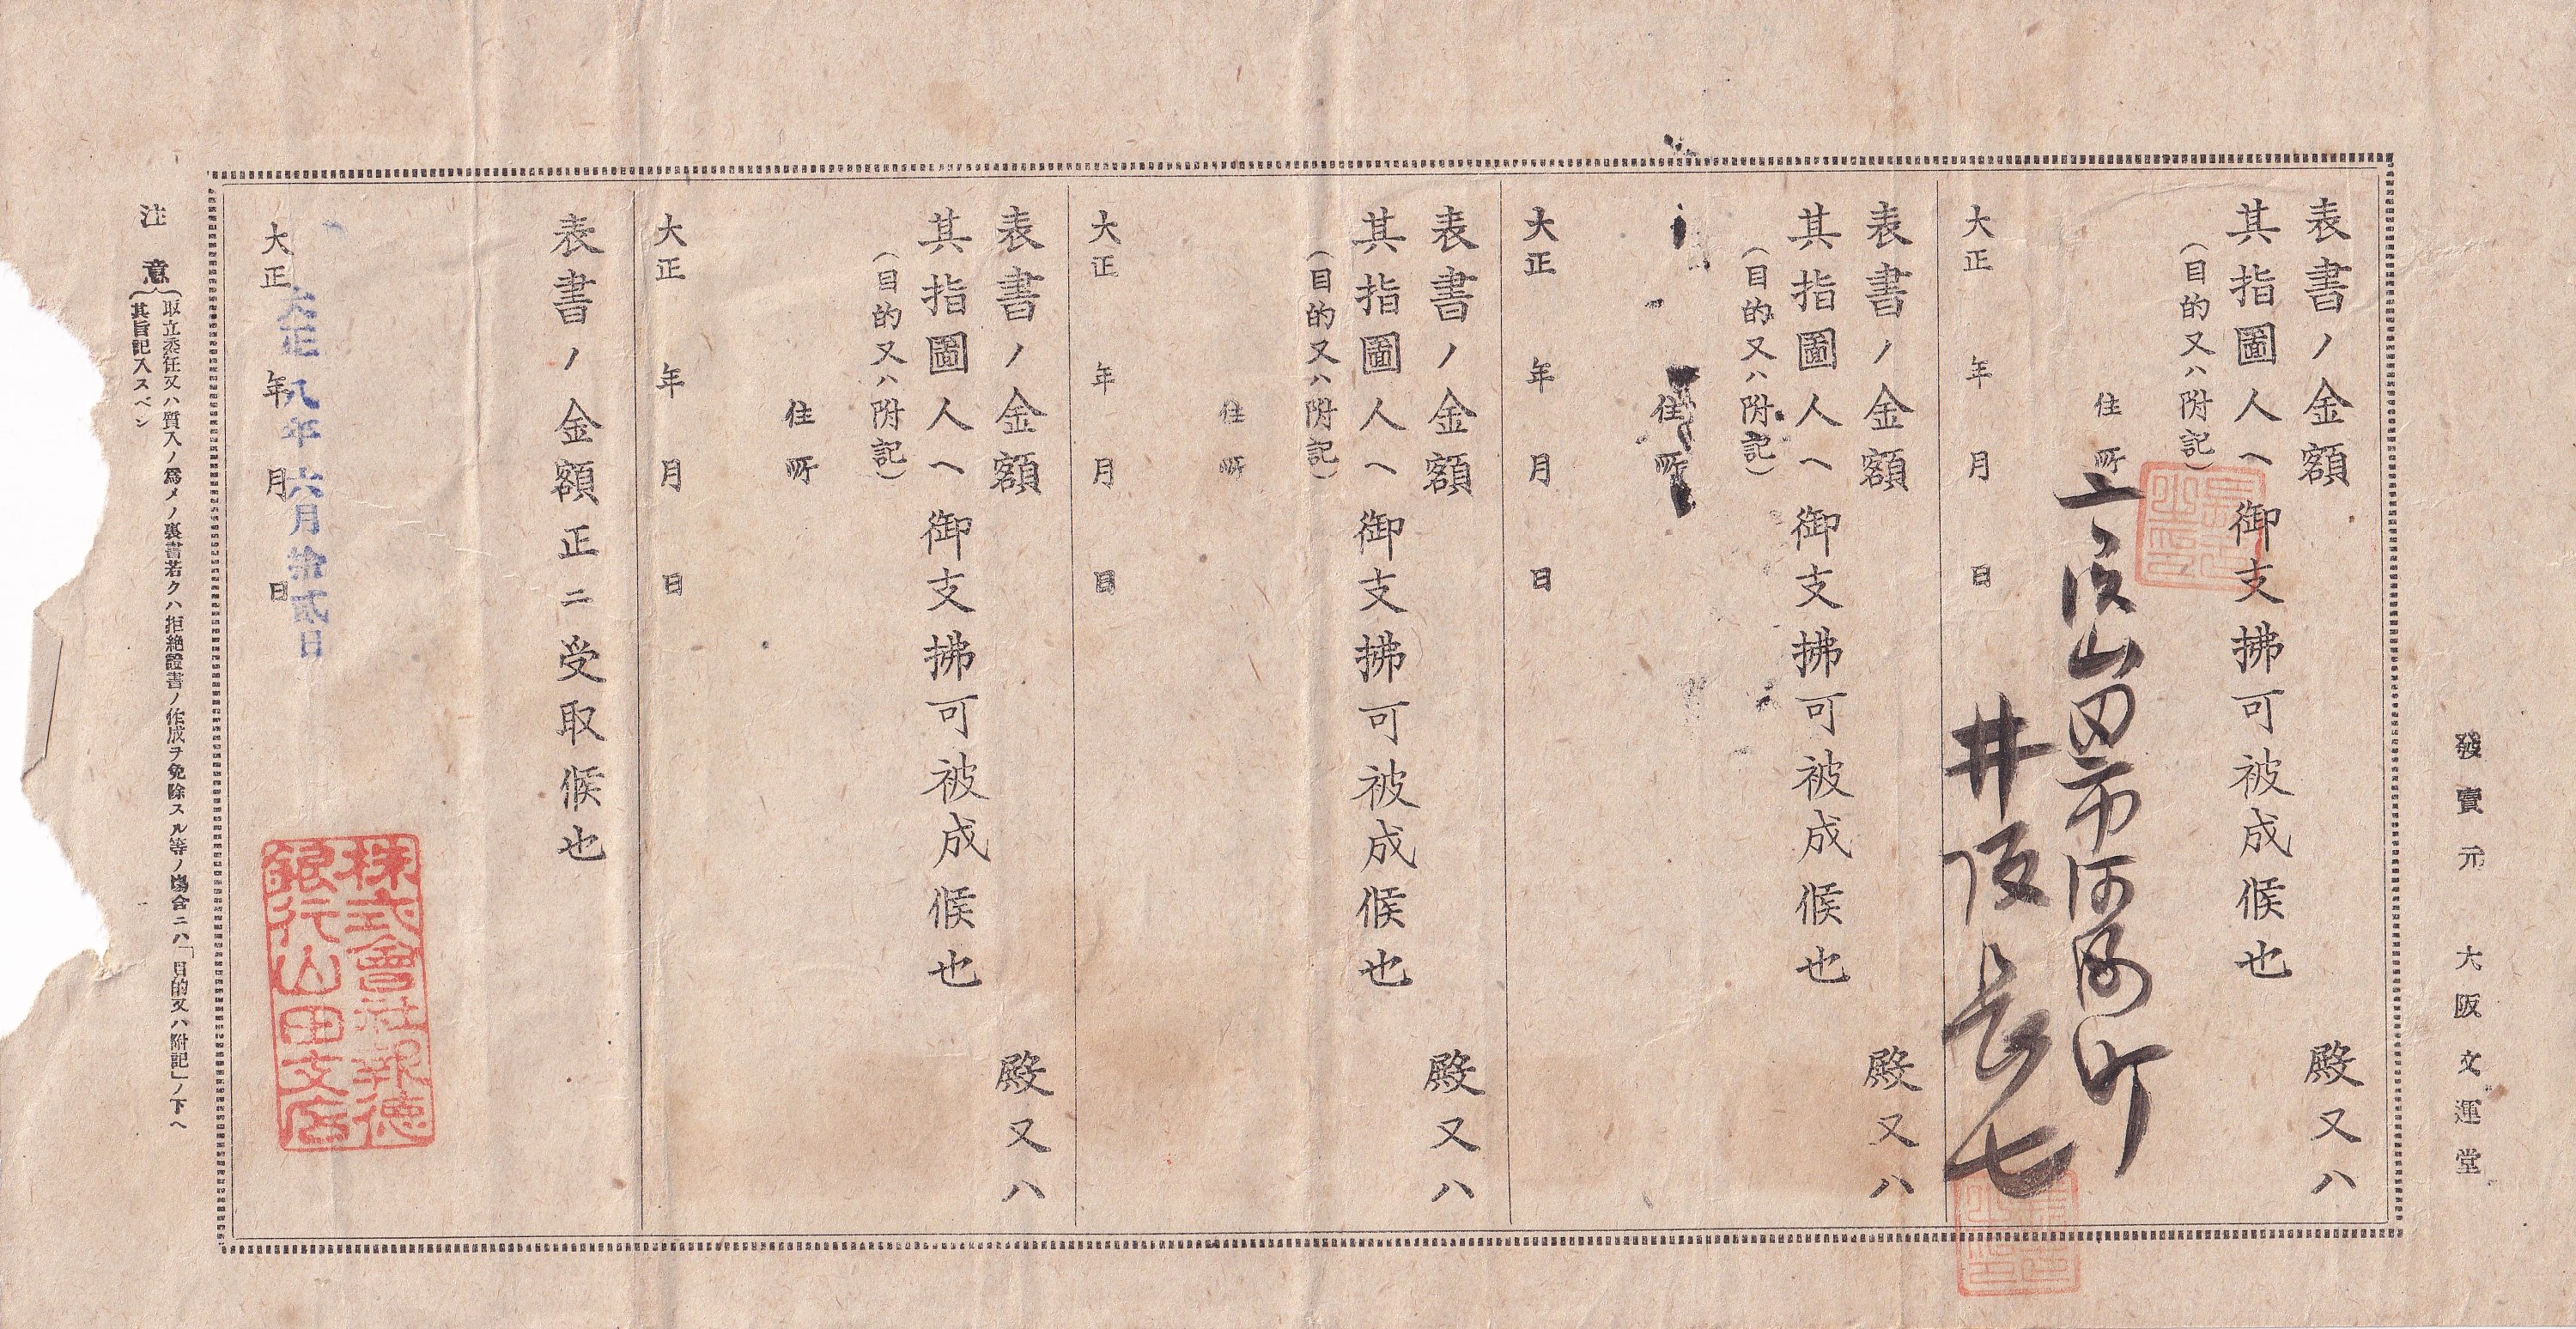 發賣元　大阪文運堂
表書ノ金額　殿又ハ
其指圖人ヘ御支拂可被成候也
（目的又ハ附記）
住所
山田市河﨑町
大正　年　月　日
井阪長七
表書ノ金額　殿又ハ
其指圖人ヘ御支拂可被成候也
（目的又ハ附記）
住所
大正　年　月　日
表書ノ金額　殿又ハ
其指圖人ヘ御支拂可被成候也
（目的又ハ附記）
住所
大正　年　月　日
表書ノ金額　殿又ハ
其指圖人ヘ御支拂可被成候也
（目的又ハ附記）
住所
大正　年　月　日
表書ノ金額正ニ受取候也
大正八年六月拾貳日
大正　年　月　日
株式會社報徳
銀行山田支店
注意
取立委任又ハ質入ノ爲メノ裏書若クハ拒絶證書ノ作成ヲ免除スル等ノ塲合ニハ「目的又ハ附記」ノ下ヘ
其旨記入スベシ